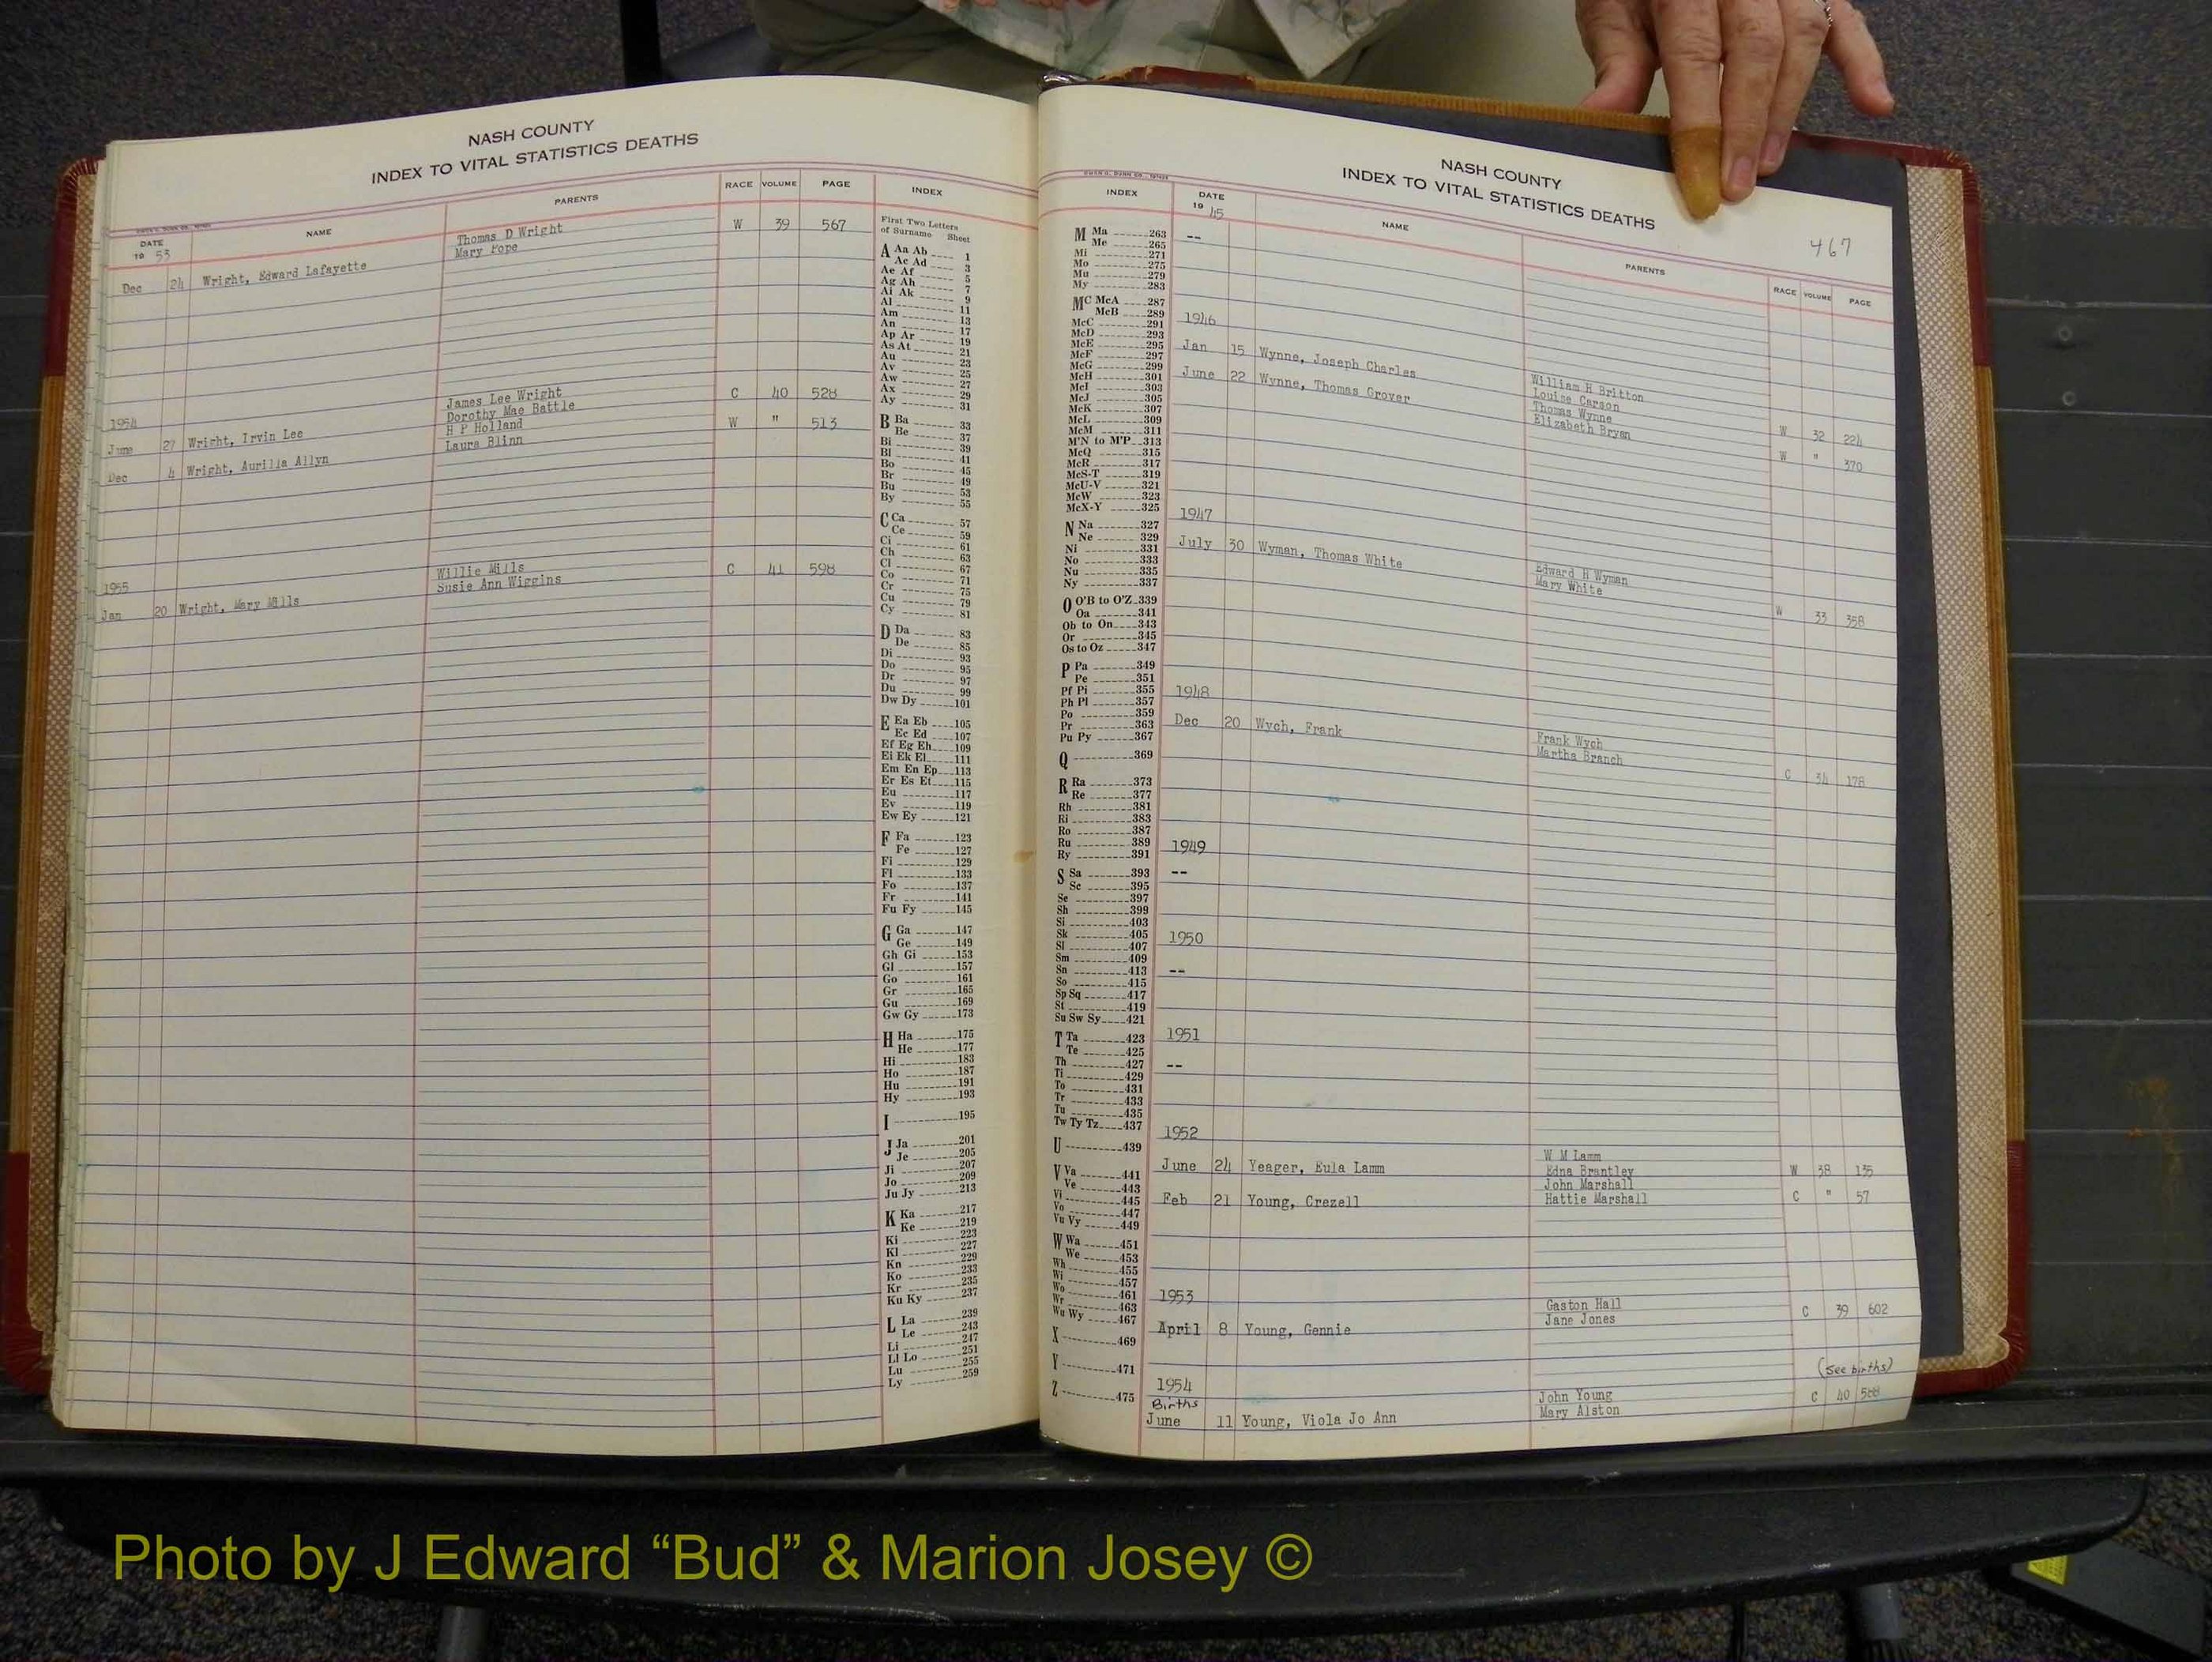 NASH COUNTY
INDEX TO VITAL STATISTICS DEATHS
DATE
19 53
NAME
PARENTS
RACE VOLUME PAGE
INDEX
Thomas D Wright W 39 567
Mary Pope
Dec 24 Wright, Edward Lafayette
James Lee Wright C 40 528
1954 Dorothy Mae Battle
June 27 Wright, Irvin Lee H P Holland W " 513
Dec 4 Wright, Aurilla Allyn Laura Blinn
Willie Mills C 41 598
1955 Susie Ann Wiggins
Jan 20 Wright, Mary Mills
First Two Letters
of Surname Sheet
A Aa Ab 1
Ac Ad 3
Ae Af 5
Ag Ah 7
Ai Ak 9
Al 11
Am 13
An 17
Ap Ar 19
As At 21
Au 23
Av 25
Aw 27
Ax 29
Ay 31
B Ba 33
Be 37
Bi 39
Bl 41
Bo 45
Br 49
Bu 53
By 55
C Ca 57
Ce 59
Ci 61
Ch 63
Cl 67
Co 71
Cr 75
Cu 79
Cy 81
D Da 83
De 85
Di 93
Do 95
Dr 97
Du 99
Dw Dy 101
E Ea Eb 105
Ec Ed 107
Ef Eg Eh 109
Ei Ek El 111
Em En Ep 113
Er Es Et 115
Eu 117
Ev 119
Ew Ey 121
F Fa 123
Fe 127
Fi 129
Fl 133
Fo 137
Fr 141
Fu Fy 145
G Ga 147
Ge 149
Gh Gi 153
Gl 157
Go 161
Gr 165
Gu 169
Gw Gy 173
H Ha 175
He 177
Hi 183
Ho 187
Hu 191
Hy 193
I 195
J Ja 201
Je 205
Ji 207
Jo 209
Ju Jy 213
K Ka 217
Ke 219
Ki 223
Kl 227
Kn 229
Ko 233
Kr 235
Ku Ky 237
L La 239
Le 243
Li 247
Ll Lo 251
Lu 255
Ly 259
NASH COUNTY
INDEX TO VITAL STATISTICS DEATHS
467
INDEX
DATE
19 45
NAME
PARENTS
RACE VOLUME PAGE
M Ma 263
Me 265
Mi 271
Mo 275
Mu 279
My 283
Mc McA 287
McB 289
McC 291
McD 293
McE 295
McF 297
McG 299
McH 301
McI 303
McJ 305
McK 307
McL 309
McM 311
M'N to M'P 313
McQ 315
McR 317
McS-T 319
McU-V 321
McW 323
McX-Y 325
N Na 327
Ne 329
Ni 331
No 333
Nu 335
Ny 337
O O'B to O'Z 339
Oa 341
Ob to On 343
Or 345
Os to Oz 347
P Pa 349
Pe 351
Pf Pi 355
Ph Pl 357
Po 359
Pr 363
Pu Py 367
Q 369
R Ra 373
Re 377
Rh 381
Ri 383
Ro 387
Ru 389
Ry 391
S Sa 393
Sc 395
Se 397
Sh 399
Si 403
Sk 405
Sl 407
Sm 409
Sn 413
So 415
Sp Sq 417
St 419
Su Sw Sy 421
T Ta 423
Te 425
Th 427
Ti 429
To 431
Tr 433
Tu 435
Tw Ty Tz 437
U 439
V Va 441
Ve 443
Vi 445
Vo 447
Vu Vy 449
W Wa 451
We 453
Wh 455
Wi 457
Wo 461
Wr 463
Wu Wy 467
X 469
Y 471
Z 475
--
1946
Jan 15 Wynne, Joseph Charles William H Britton
Louise Carson W 32 224
June 22 Wynne, Thomas Grover Thomas Wynne
Elizabeth Bryan W " 370
1947
July 30 Wyman, Thomas White Edward H Wyman
Mary White W 33 358
1948
Dec 20 Wych, Frank Frank Wych
Martha Branch C 34 178
1949
--
1950
--
1951
--
1952
W M Lamm
June 24 Yeager, Eula Lamm Edna Brantley W 38 135
John Marshall
Feb 21 Young, Crezell Hattie Marshall C " 57
1953
Gaston Hall C 39 602
April 8 Young, Gennie Jane Jones
(See births)
1954
Births John Young C 40 588
June 11 Young, Viola Jo Ann Mary Alston
Photo by J Edward “Bud” & Marion Josey ©